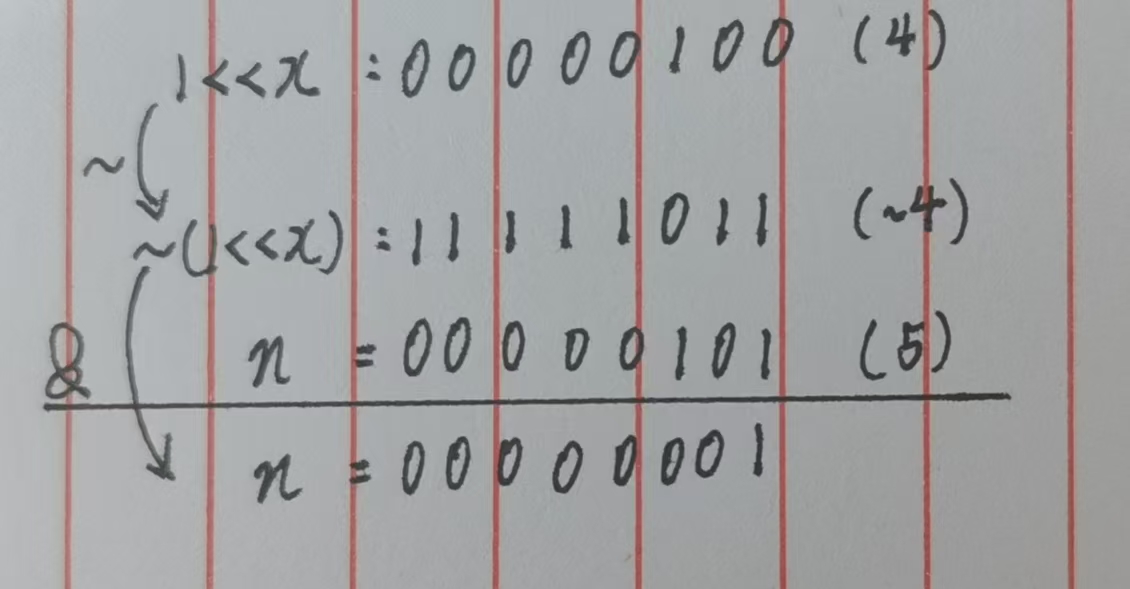 1<<x : 00000100 (4)
~
~(1<<x) : 11111011 (~4)
& n = 00000101 (5)
n = 00000001